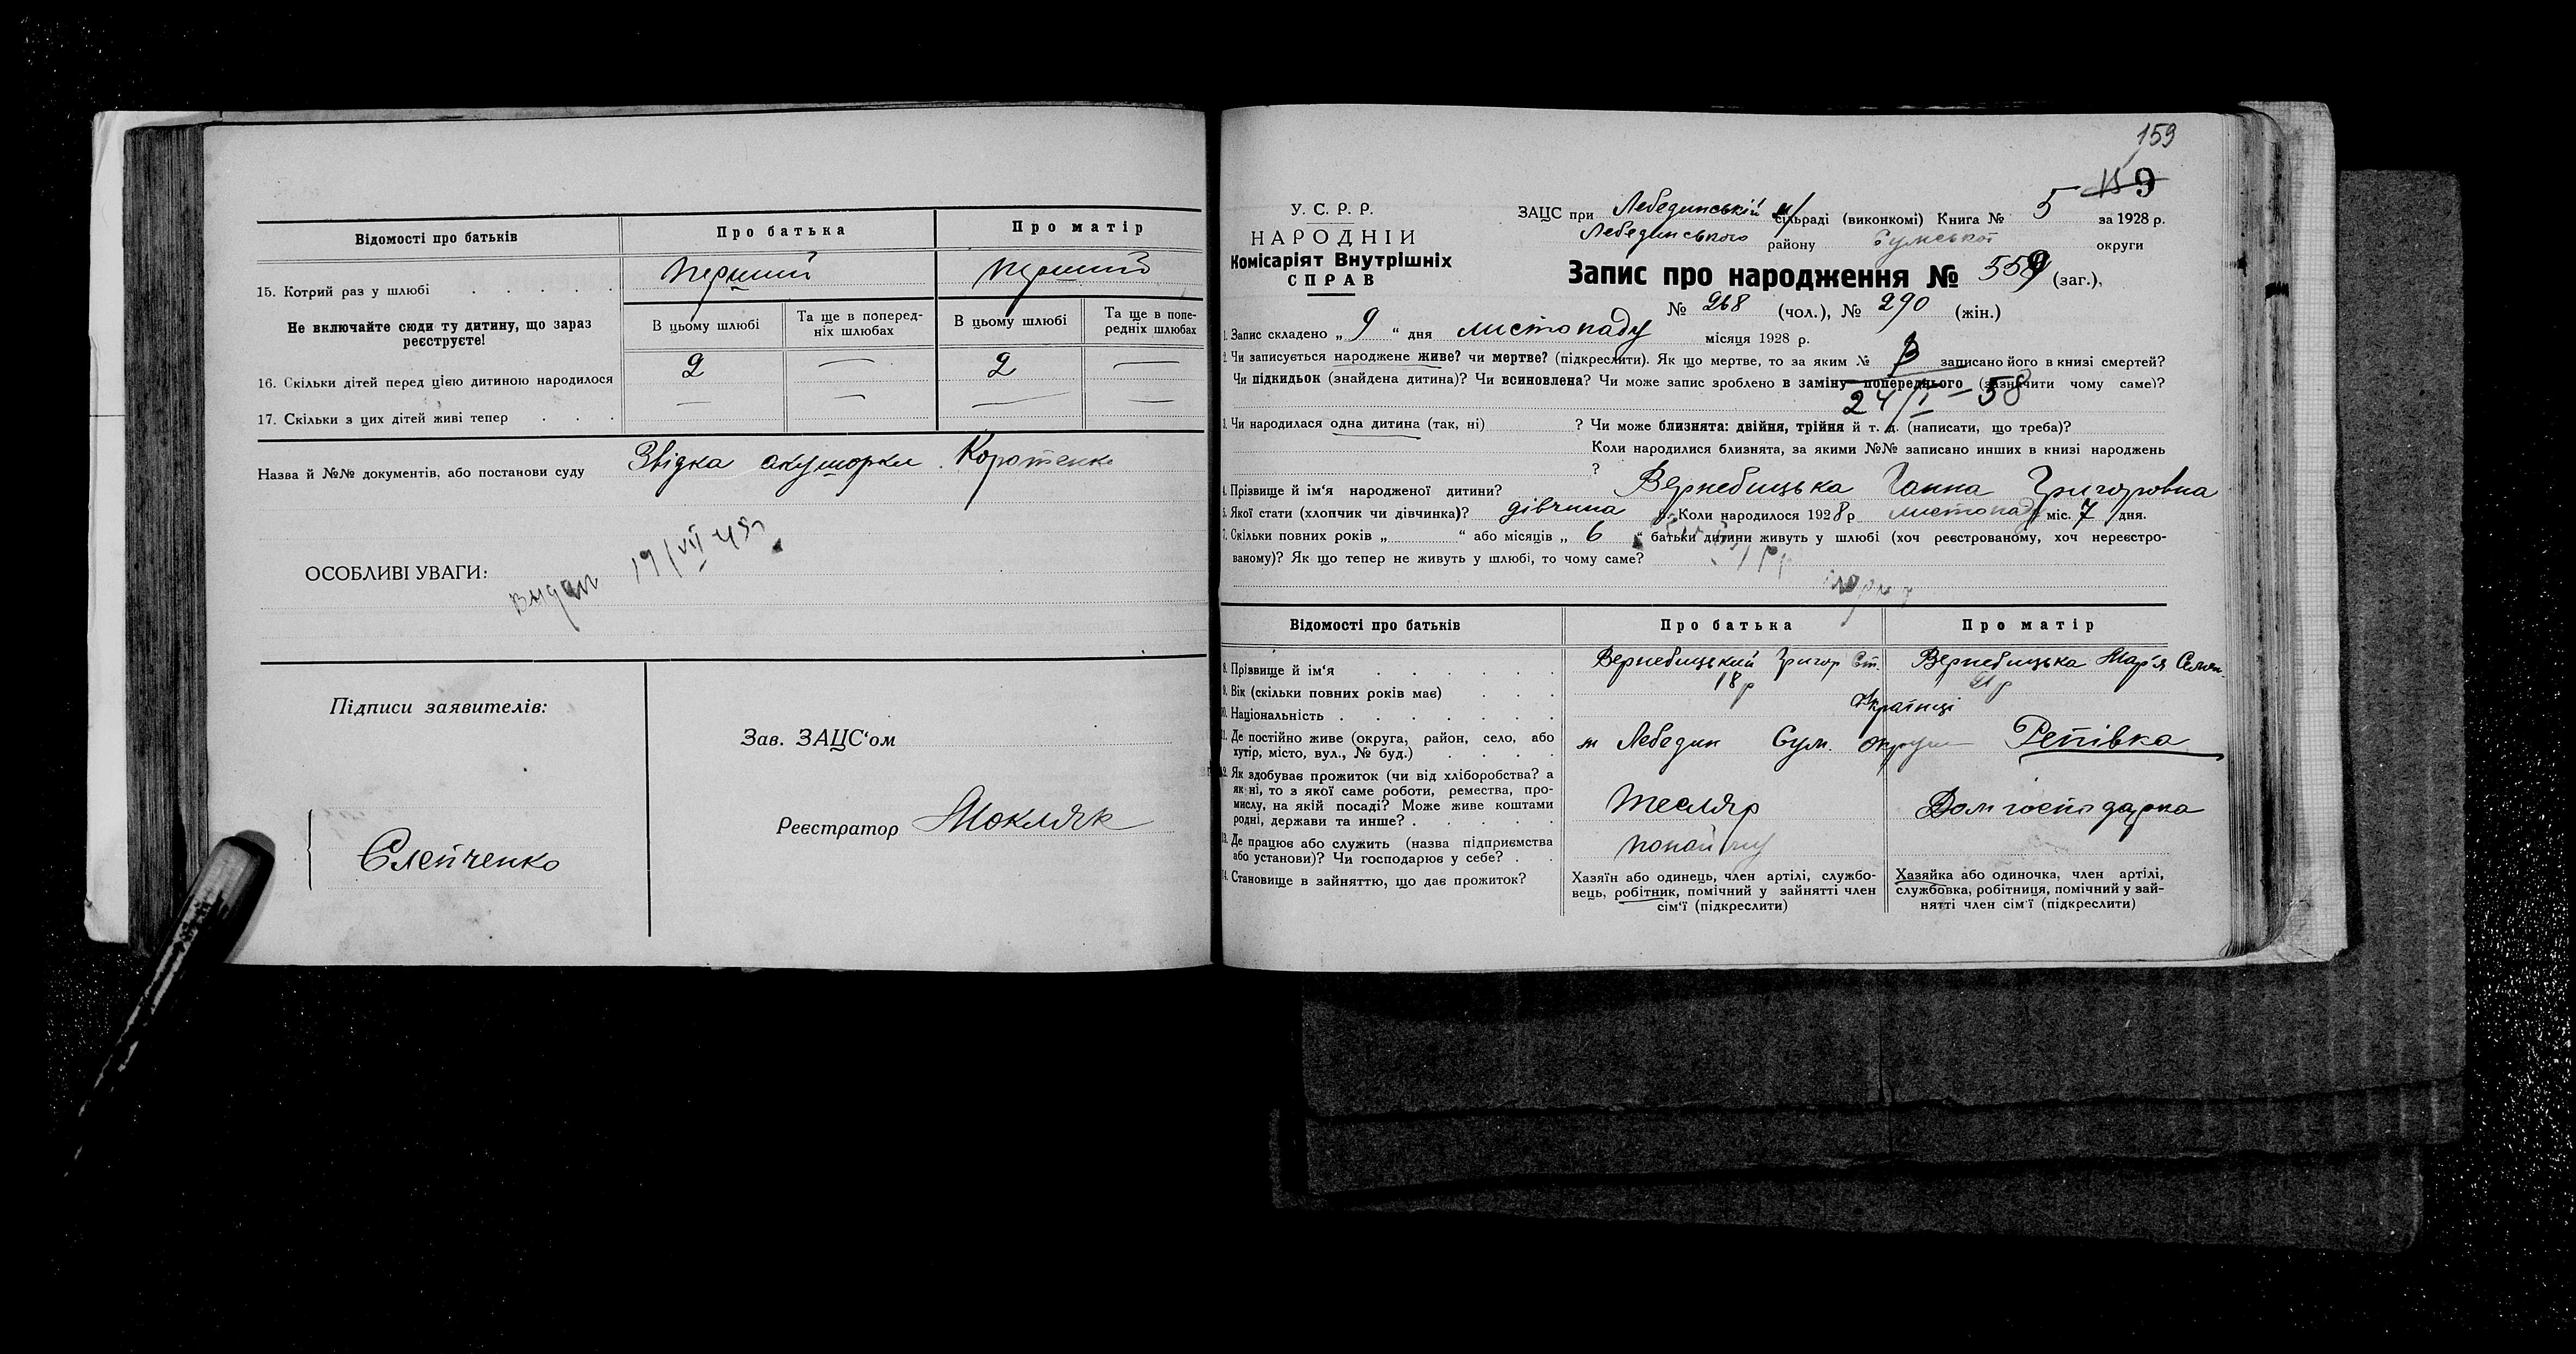 Відомості про батьків
Про батька
Про матір
15. Котрий раз у шлюбі
перший
перший
Не включайте сюди ту дитину, що зараз
реєструєте!
В цьому шлюбі
Та ще в поперед-
ніх шлюбах
В цьому шлюбі
Та ще в попе-
редніх шлюбах
16. Скільки дітей перед цією дитиною народилося
2 — 2 —
17. Скільки з цих дітей живі тепер
— — — —
Назва й №№ документів, або постанови суду Звідка акушорки Коротенко
ОСОБЛИВІ УВАГИ:
19/VII 49
Підписи заявителів:
Слепченко
Зав. ЗАЦС‘ом
Реєстратор Мокляк
159
9
У. С. Р. Р.
НАРОДНІЙ
Комісаріят Внутрішніх
СПРАВ
ЗАЦС при Лебединській м/сільраді (виконкомі) Книга № 5 за 1928 р.
Лебединського району Сумської округи
Запис про народження № 559 (заг.),
№ 268 (чол.), № 290 (жін.)
1. Запис складено „ 9 “ дня листопаду місяця 1928 р.
2. Чи записується народжене живе? чи мертве? (підкреслити). Як що мертве, то за яким № записано його в книзі смертей?
Чи підкидьок (знайдена дитина)? Чи всиновлена? Чи може запис зроблено в заміну попереднього (зазначити чому саме)?
24/I – 58
3. Чи народилася одна дитина (так, ні) ? Чи може близнята: двійня, трійня й т. д. (написати, що треба)?
Коли народилися близнята, за якими №№ записано инших в книзі народжень
?
4. Прізвище й ім‘я народженої дитини? Вернебицька Ганна Григоровна
5. Якої стати (хлопчик чи дівчинка)? дівчина 6. Коли народилося 1928 р листопад міс. 7 дня.
7. Скільки повних років „ “ або місяців „ 6 “ батьки дитини живуть у шлюбі (хоч реєстрованому, хоч нереєстро-
ваному)? Як що тепер не живуть у шлюбі, то чому саме?
Відомості про батьків
Про батька
Про матір
8. Прізвище й ім‘я
Вернебицький Григор Ст.
Вернебицька Мар‘я Семен.
9. Вік (скільки повних років має)
18 р
21 р
10. Національність
Українці
11. Де постійно живе (округа, район, село, або
хутір, місто, вул., № буд.)
м Лебедин Сум. округи Репівка
12. Як здобуває прожиток (чи від хліборобства? а
як ні, то з якої саме роботи, ремества, про-
мислу, на якій посаді? Може живе коштами
родні, держави та инше?
Тесляр
Дом господарка
13. Де працює або служить (назва підприємства
або установи)? Чи господарює у себе?
по найму
14. Становище в зайняттю, що дає прожиток?
Хазяїн або одинець, член артілі, службо-
вець, робітник, помічний у зайнятті член
сім‘ї (підкреслити)
Хазяйка або одиночка, член артілі,
службовка, робітниця, помічний у зай-
нятті член сім‘ї (підкреслити)